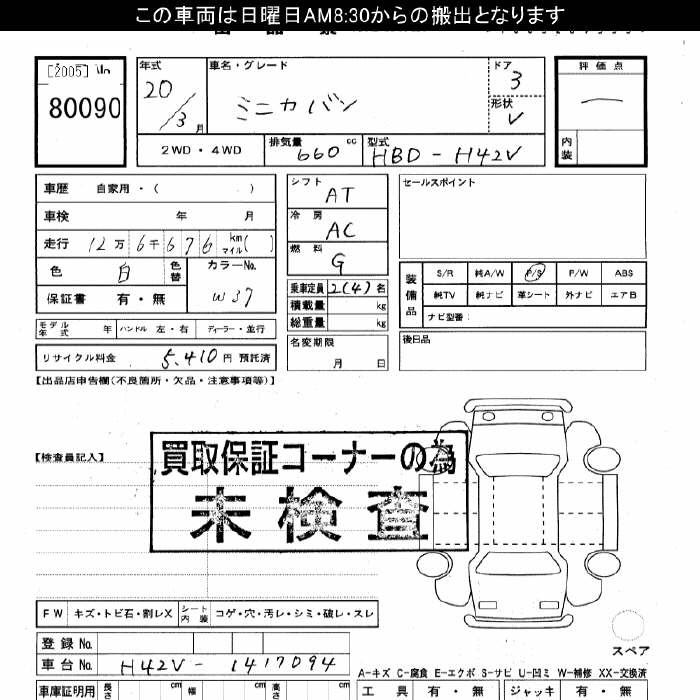 この車両は日曜日AM8:30からの搬出となります
[2005]
80090
年式 車名・グレード ドア 評価点
20/3月 ミニカバン 3 一
形状 V
2WD・4WD 排気量 660 cc 型式 HBD-H42V 内装
車歴 自家用・( ) シフト AT セールスポイント
車検 年 月 冷房 AC
走行 12万6千676 km マイル( ) 燃料 G
色 白 色替 カラーNo. W37
保証書 有・無
乗車定員 2(4)名
積載量 kg
総重量 kg
装備品 S/R 純A/W P/S P/W ABS
純TV 純ナビ 革シート 外ナビ エアB
ナビ型番:
モデル年式 年 ハンドル 左・右 ディーラー・並行 名変期限 月 日 後日品
リサイクル料金 5,410円 預託済
【出品店申告欄(不良箇所・欠品・注意事項等)】
【検査員記入】
買取保証コーナーの為
未検査
FW キズ・トビ石・割レX シート内装 コゲ・穴・汚レ・シミ・破レ・スレ
スペア
登録No.
車台No. H42V-1417094
A-キズ C-腐食 E-エクボ S-サビ U-凹ミ W-補修 XX-交換済
車庫証明用 長さ cm 幅 cm 高さ cm 工具 有・無 ジャッキ 有・無